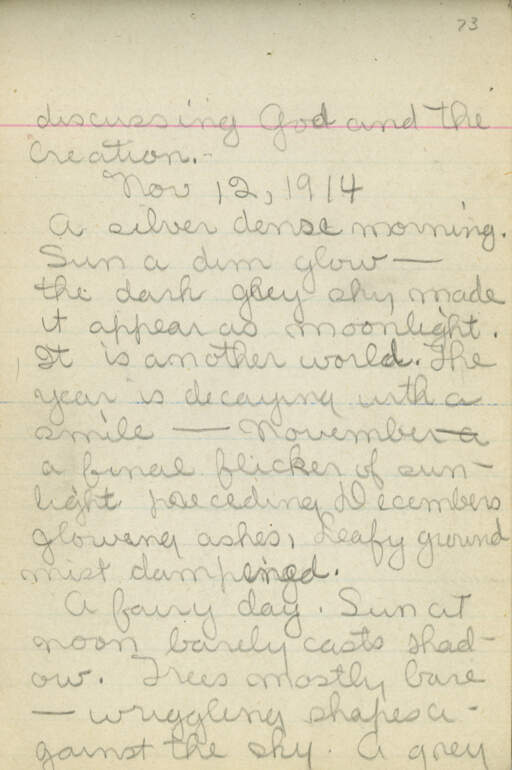 73
discussing God and the
creation.-
Nov 12, 1914
A silver dense morning.
Sun a dim glow —
the dark grey sky, made
it appear as moonlight.
It is another world. The
year is decaying with a
smile — November a
a final flicker of sun-
light preceding Decembers
glowing ashes, Leafy ground
mist dampened.
A fairy day. Sun at
noon barely casts shad-
ow. Trees mostly bare
— wriggling shapes a-
gainst the sky. A grey